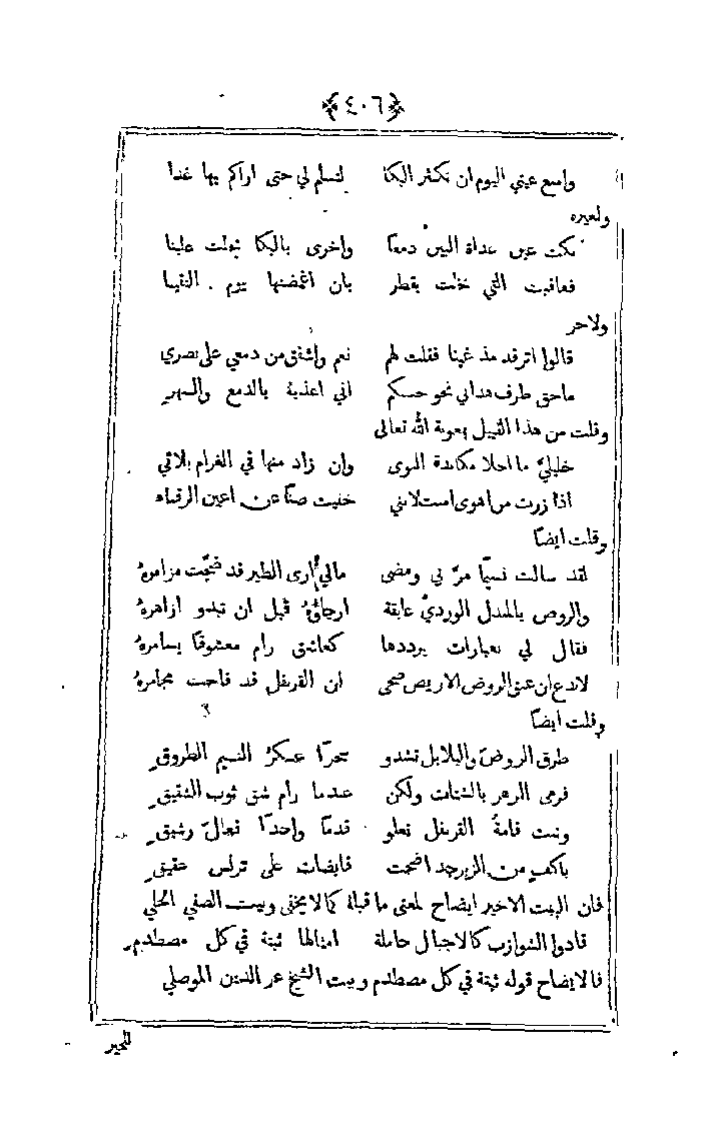 ﴿٤٠٦﴾
وامنع عيني اليوم ان تكثر البكا لتسلم لي حتى اراكم بها غدا
ولغيره
بكت عين غداة البين دمعًا واخرى بالبكا بخلت علينا
فعاقبت التي بخلت بقطر بان اغمضتها يوم التقينا
ولاخر
قالوا اترقد مذ غبنا فقلت لهم نعم واشفق من دمعي على بصري
ماحق طرف هداني نحو حسنكم اني اعذبهُ بالدمع والسهر
وقلت من هذا القبيل بمعونة الله تعالى
خليليَّ ما احلا مكابدة الهوى وان زاد منها في الغرام بلائي
اذا زرت من اهوى استلاني خفيت ضنًا عن اعين الرقباء
وقلت ايضًا
لقد سالت نسيمًا مرَّ بي ومضى مالي ارى الطير قد ضجَّت مزامرهُ
والروض بالمندل الورديّ عابقة ارجاؤهُ قبل ان تبدو ازاهرهُ
فقال لي بعبارات يرددها كعاشق رام معشوقًا يسامرهُ
لاتدع ان عبق الروض الاريض ضحى ان القرنفل قد فاحت مجامرهُ
وقلت ايضًا
طرق الروضَ والبلابل تشدو سحرًا عسكرُ النسيم الطروقِ
فرمى الزهر بالشتات ولكن عندما رام شق ثوب الشقيقِ
وثبت قامةُ القرنفل تعلو قدمًا واحدًا تعالَ رشيقِ
باكفٍ من الزبرجد اضحت قابضات على تراس عقيقِ
فان البيت الاخير ايضاح لمعنى ما قبلهُ كما لا يخفى وبيت الصفي الحلي
قادوا الشوازب كالاجبال حاملة امثالها ثبتة في كل مصطدمِ
فالايضاح قوله ثبتة في كل مصطدم وبيت الشيخ عز الدين الموصلي
للخير